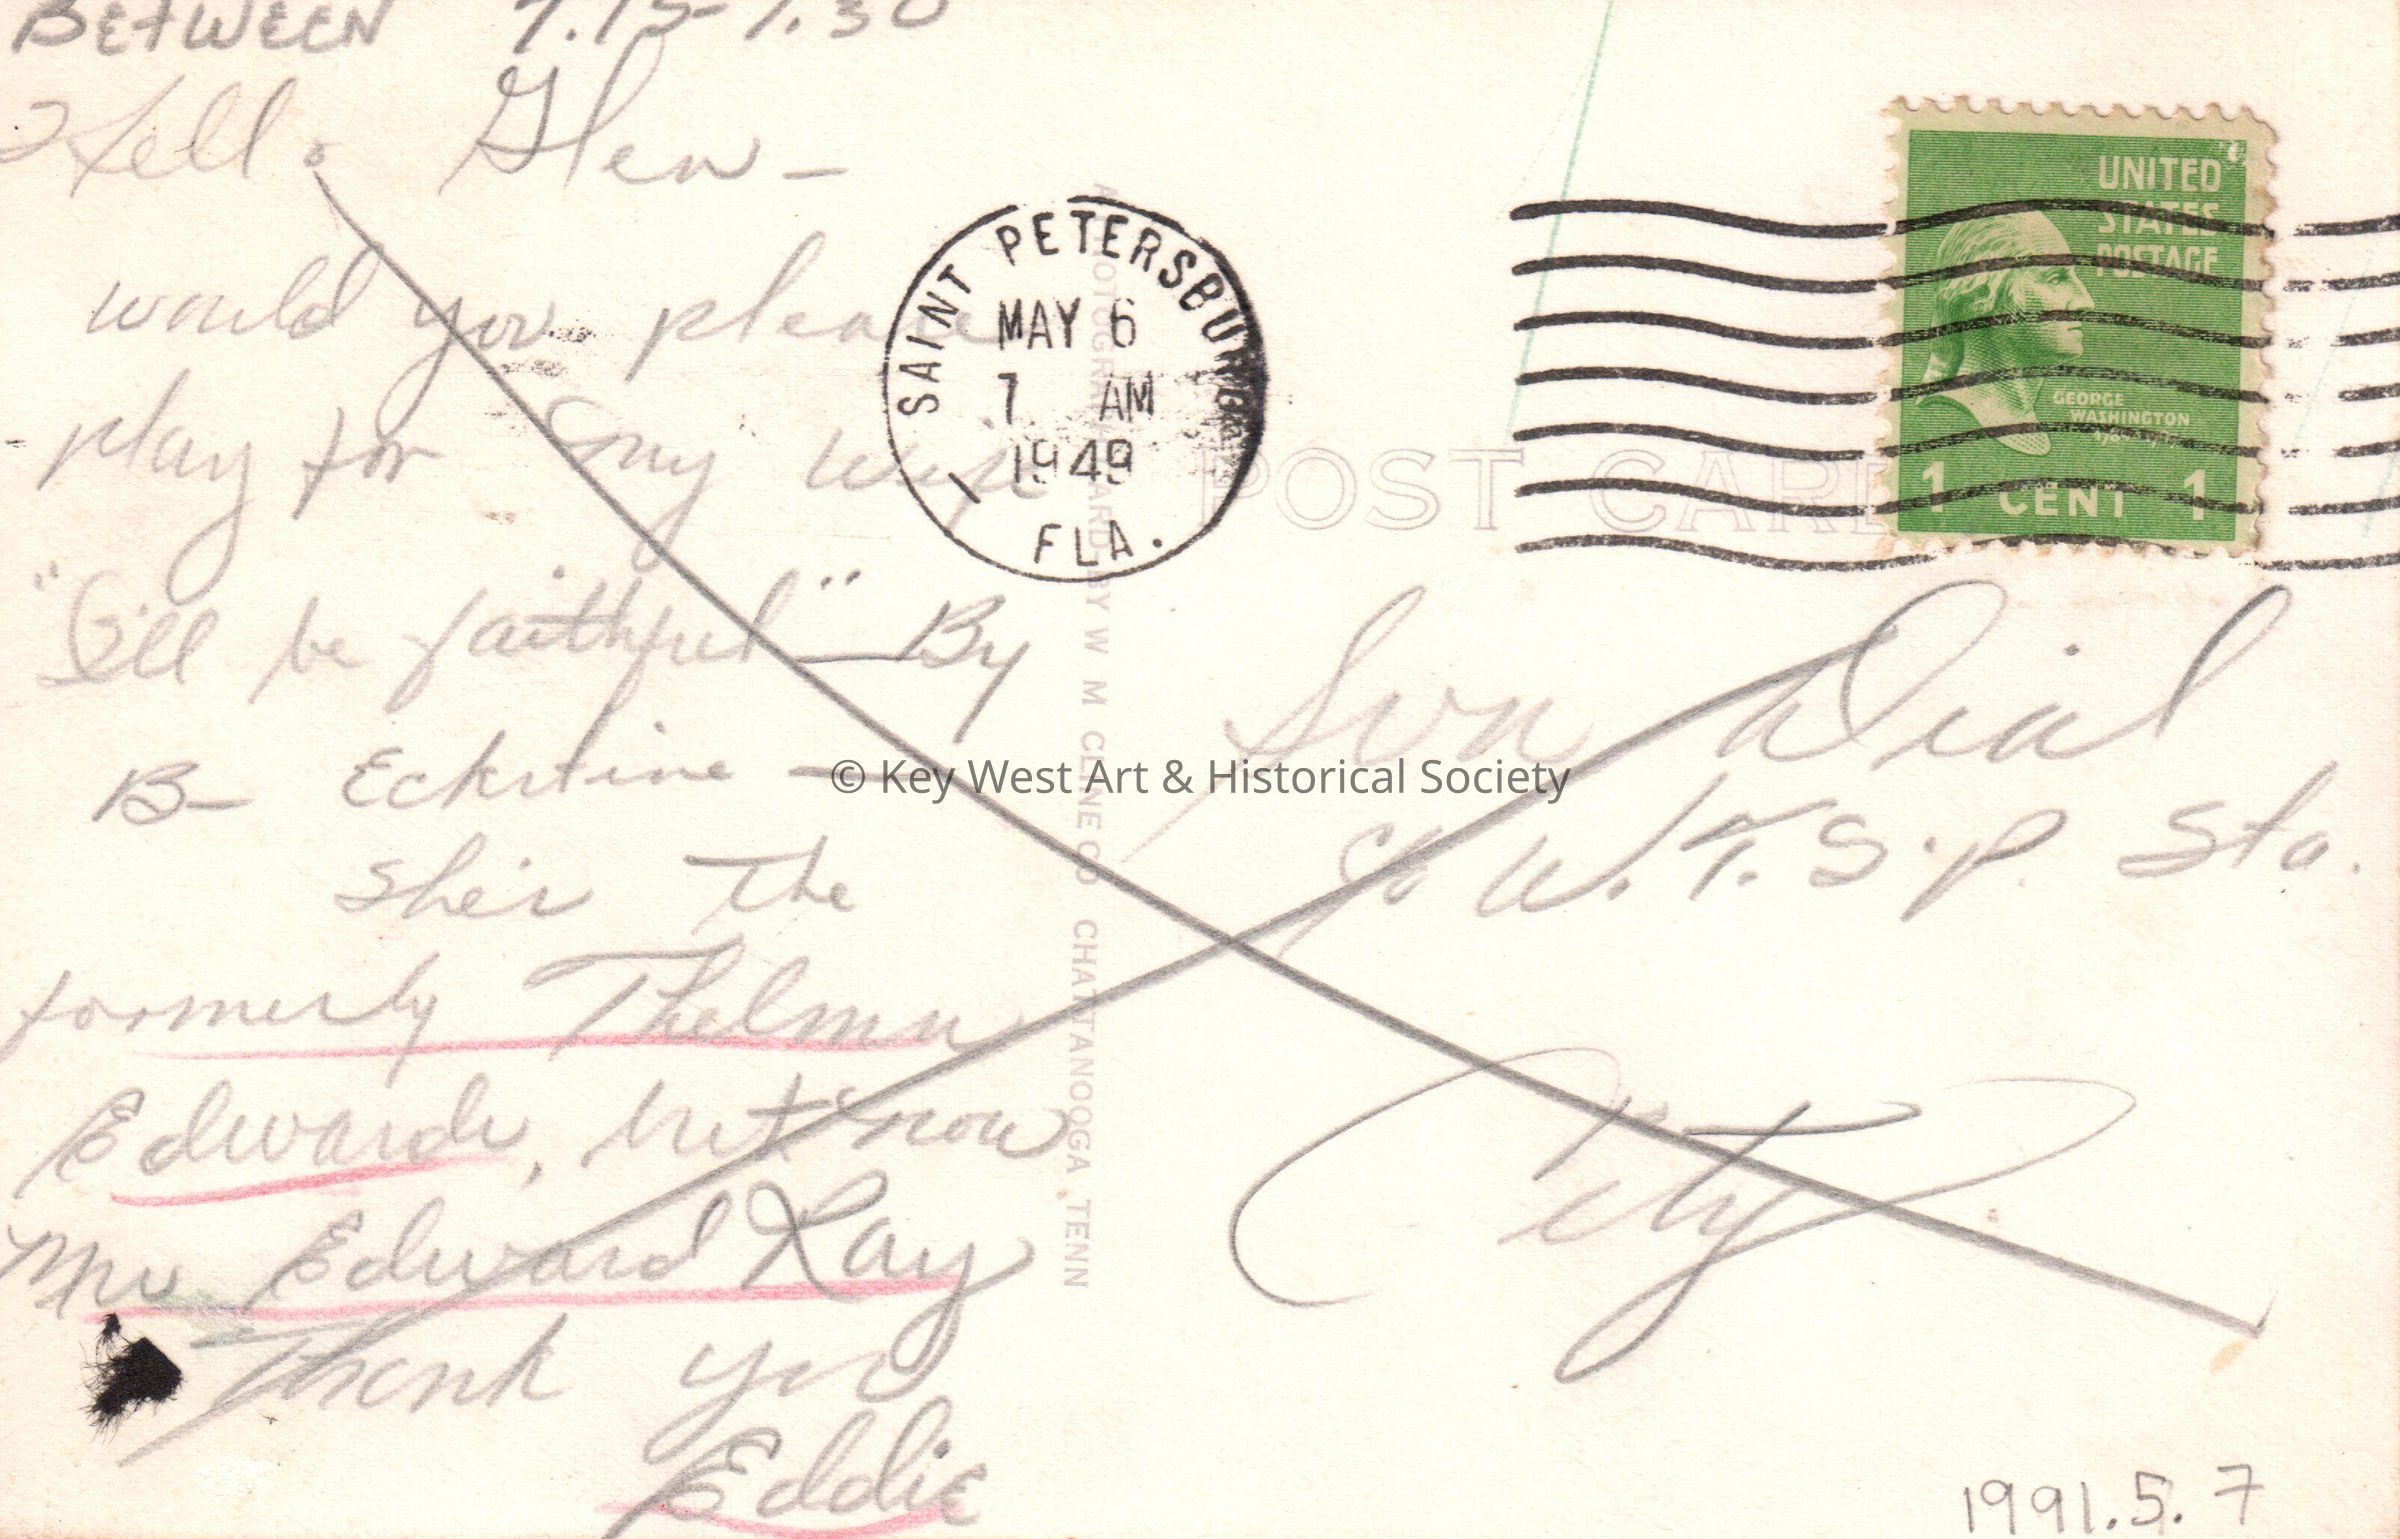 BETWEEN 7.15-7.30
Hell. Glen -
would you please
play for my wife
"I'll be faithful" - By
B- Eckstine -
She's the
formerly Thelma
Edwards, but now
Mrs Edward Kay
Thank you
Eddie
SAINT PETERSBURG
MAY 6
7 AM
1949
1
FLA.
A PHOTOGRAPH CARD BY W M CLINE CO CHATTANOOGA TENN
POST CARD
UNITED
STATES
POSTAGE
GEORGE
WASHINGTON
1 CENT 1
Sun Dial
c/o W.T.S.P. Sta.
City
© Key West Art & Historical Society
1991.5.7